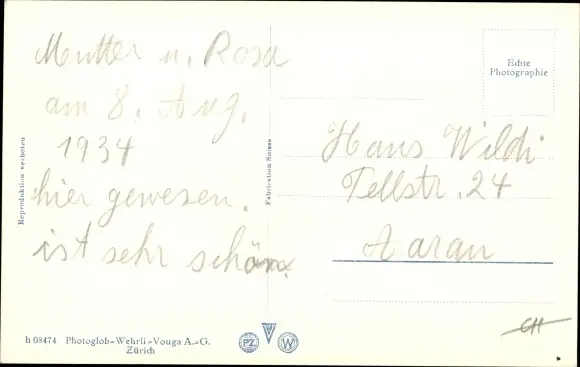 Mutter u. Rosa
am 8. Aug.
1934
hier gewesen.
ist sehr schön.
Echte
Photographie
Hans Wildi
Tellstr. 24
Aarau
Reproduktion verboten
Fabrication Suisse
h 08474 Photoglob-Wehrli-Vouga A.-G.
Zürich
PZ V W
CH